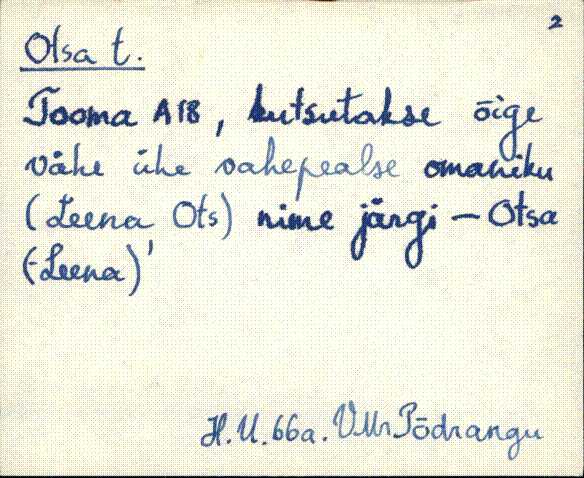 2
Otsa t.
Tooma A18, kutsutakse õige
vähe ühe vahepealse omaniku
(Leena Ots) nime järgi – Otsa
(-Leena)'
H.U. 66a. VMr Põdrangu